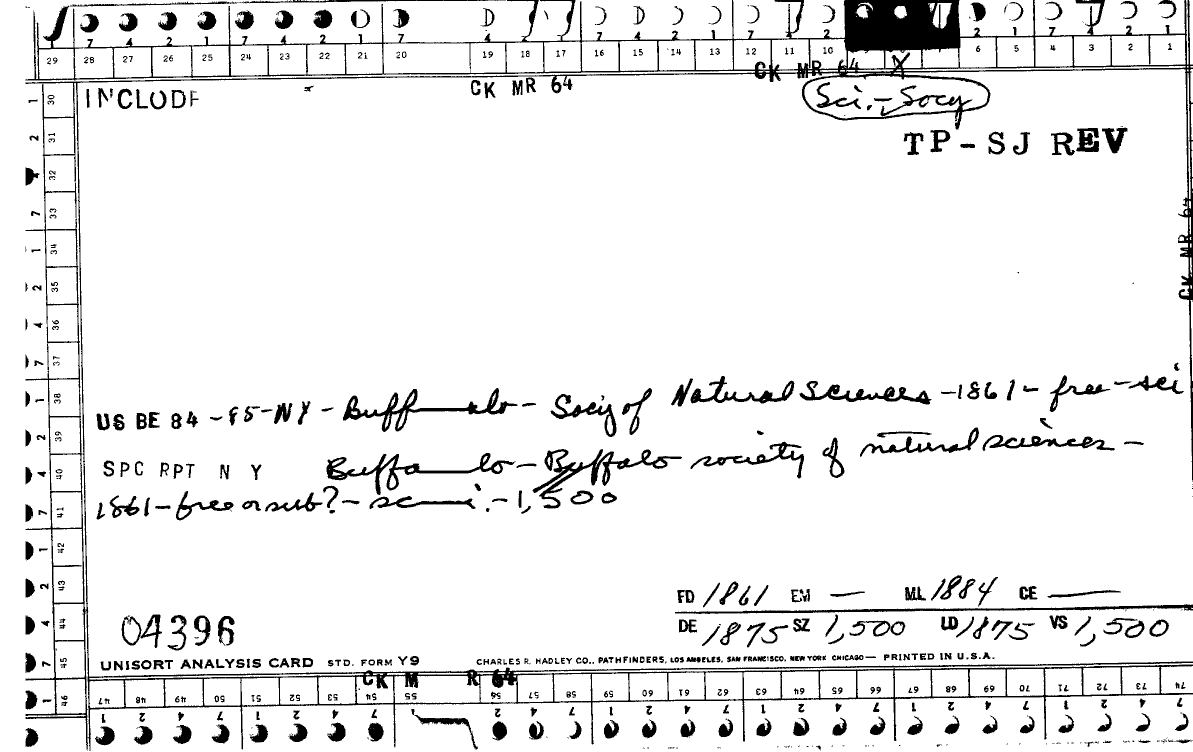 7 4 2 1 7 4 2 1 7 4 7 4 2 1 7 4 2 2 1 7 4 2 1
29 28 27 26 25 24 23 22 21 20 19 18 17 16 15 14 13 12 11 10 6 5 4 3 2 1
CK MR 64 CK MR 64 X
INCLUDE Sci.-Socy
TP-SJ REV
CK MR 64
1 30
2 31
4 32
7 33
1 34
2 35
4 36
7 37
1 38
2 39
4 40
7 41
1 42
2 43
4 44
7 45
1 46
US BE 84-85-NY-Buffalo- Socy of Natural Sciences-1861-free-sci
SPC RPT N Y Buffalo-Buffalo society of natural sciences-
1861-free or sub?-sci.-1,500
FD 1861 EM — ML 1884 CE —
DE 1875 SZ 1,500 LD 1875 VS 1,500
04396
UNISORT ANALYSIS CARD STD. FORM Y9 CHARLES R. HADLEY CO., PATHFINDERS, LOS ANGELES, SAN FRANCISCO, NEW YORK CHICAGO— PRINTED IN U.S.A.
CK M R 64
47 48 49 50 51 52 53 54 55 56 57 58 59 60 61 62 63 64 65 66 67 68 69 70 71 72 73 74
1 2 4 7 1 2 4 7 1 2 4 7 1 2 4 7 1 2 4 7 1 2 4 7 1 2 4 7